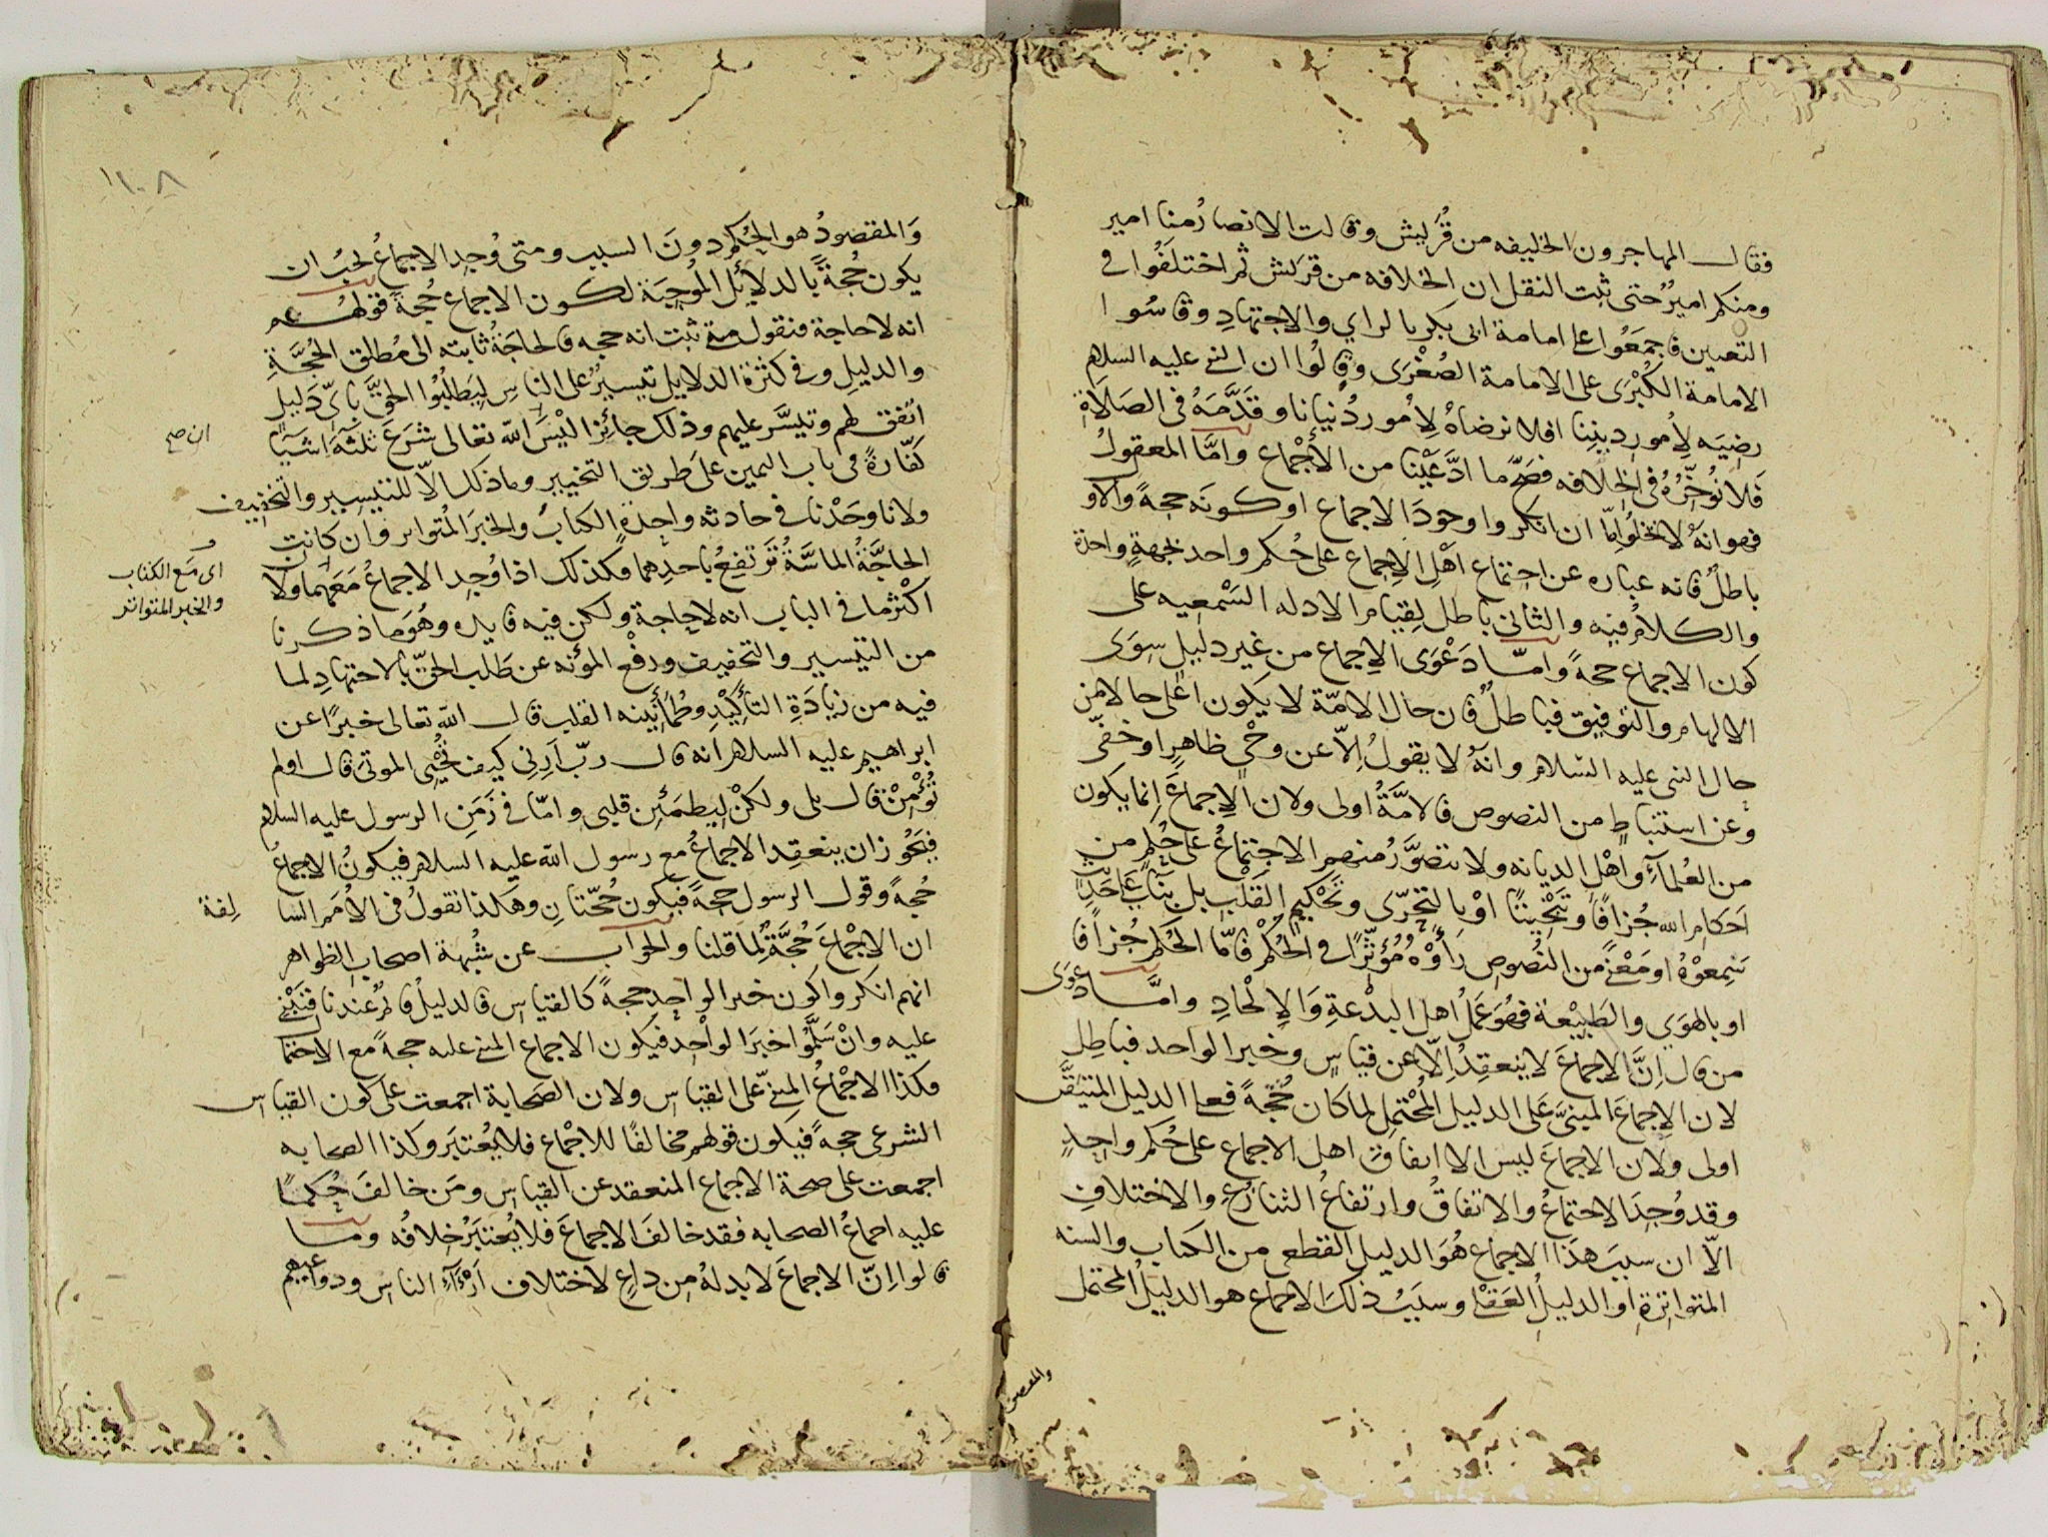 فقال المهاجرون الخليفه من قُرَيش وقالت الانصارُ منا امير
ومنكم اميرٌ حتى ثبت النقل ان الخلافه من قريش ثم اختلَفُوا في
التعيين فاجمَعُوا على امامة ابى بكرٍ بالراي والاجتهادِ وقاسُوا
الامامة الكُبْرَى على الامامة الصُغْرَى وقالُوا ان النبى عليه السلام
رضيَه لِأمورِ دِينِنا افلا نرضاهُ لِأمورِ دُنيانا وقدَّمَهُ فى الصَلَاةِ
فَلَا نُوخِّرُهُ فى الخلافه فصَحّ ما ادَّعَيْنا من الأجْماع وامَّا المعقولُ
فهو انهُ لا تخلُوا اِمّا ان انكروا وجودَ الاجماع او كونَه حجةً والاو
باطلٌ فانه عباره عن اجتماع اهلِ الاجماع على حُكم واحد بجهةٍ واحدة
والكلامُ فيه والثانى باطل لِقيام الادله السَمْعيه على
كون الاجماع حجةً وامّا دَعْوَى الاجماع من غير دليلٍ سِوَى
الالهام والتوفيق فباطلٌ فان حال الامّة لا يكون اعلى حالا من
حال النبى عليه السّلام وانهُ لا يقولُ اِلّا عن وحْىٍ ظاهرٍ او خفّى
وعن استنباطٍ من النصوص فالامَّةُ اولى ولان الاِجماعَ اِنما يكون
من العُلمآءِ واَهْلِ الديانه ولا يتصوَّرُ منهم الاجتماعُ على حُكمٍ من
احكام الله جُزافًا وتَبْخِيتًا اوْ بالتحَرّى وتَحْكيم القَلْبِ بل بِنآءً على حَدِيْثٍ
سَمِعوْهُ او مَعْنًى من النُصوص رأَوْهُ مُؤثِّرًا فى الحُكْم فامّا الحُكم جُزافًا
او بالهوَى والطَبِيْعة فهُوَ عَمَلُ اهل البِدْعةِ وَالاِلْحادِ وامَّا دعوَى
من قال اِنَّ الاِجماعَ لا ينعقِدُ اِلّا عن قياسٍ وخبر الواحد فباطِل
لان الاِجماعَ المبنىَّ عَلى الدليل المُحْتمِل لما كان حُجّةً فعلى الدليل المتيَقَّن
اولى ولان الاجماعَ ليس الا اتفاق اهل الاجماع على حُكم واحِدٍ
وقد وُجِدَ الاجتماعُ والاتفاقُ وارتفاعُ التنازُعِ والاختلافِ
الّا ان سببَ هذَا الاجماع هُوَ الدليل القطعى من الكتاب والسنه
المتواترة او الدليلُ العَقلىُ وسبَبُ ذلكَ الاجماع هو الدليلُ المحتمل
والمقصود
١٠٨
وَالمقصودُ هو الحُكم دونَ السبب ومتى وُجد الاجماعُ يجبُ ان
يكون حُجةً بالدلائل المُوجِبَة لكون الاجماع حُجةً قولُهُم
انه لا حاجة فنقول متى ثبت انه حجه فالحاجَةُ ثابته الى مُطلق الحُجَّةِ
والدليلِ وفى كثرة الدلايل تيسيرٌ على الناسِ لِيَطلُبُوا الحقَّ بأىِّ دَليلٍ
اتفق لهم وتيسَّر عليهم وذلك جائِزٌ اليْسَ الله تعالى شرَعَ ثلثَة اشيآ
ان صح
كَفّارةً فى باب اليمين على طريق التخيير وما ذلك الّا للتيسير والتخفيف
ولانا وَجَدْنا فى حادثه واحِدةٍ الكتابَ والخبرَ المُتواتر وان كانت
الحاجَةُ الماسَّةُ تَرتفِعُ باحدِهما فكذلك اذا وُجِد الاجماعُ مَعَهُما ولا
اى مع الكتاب
والخبر المتواتر
اكثرُ ما فى الباب انه لا حاجة ولكن فيه فايده وهُوَ ما ذكرنا
من التيْسير والتخفيف ورفْع المؤنه عن طَلب الحقّ بالاجتهادِ لما
فيه من زيادَةِ التأكِيْدِ وطُمأنِينه القلب قال الله تعالى خبرًا عن
ابراهيم عليه السلام انه قال ربّ اَرِنى كيف تُحْيِى الموتى قال اولم
تُؤْمِنْ قال بلى ولكنْ لِيطمَئِن قلبى وامّا فى زَمَنِ الرسول عليه السلام
فيَجُوزُ ان ينعقِد الاجماعُ مع رسول الله عليه السلام فيكونُ الاجماعُ
حُجةً وقول الرسول حجةً فيكون حُجّتانِ وهكذا نقولُ فى الاُمَم السا
لِفة
ان الاِجْماعَ حُجَّةٌ لِما قلنا والجواب عن شُبْهة اصحابِ الظواهر
انهم انكروا كون خبر الواحِدِ حجةً كالقياس فالدليلُ قائمٌ عندنا فنَبْنِى
عليه وانْ سَلَّمُوا خبَرَ الواحِد فيكون الاجماع المبنى عليه حجةً مع الاحتما
فكذا الاجْماعُ المبنىّ على القياس ولان الصَحابة اجمعت على كون القياس
الشرعى حجةً فيكون قولهم مخالفًا للاجْماع فلا يُعْتبَر وكذا الصحابه
اجمعت على صحة الاجماع المنعقد عن القياس ومَن خالفَ حُكمًا
عليه اجماعُ الصحابه فقد خالفَ الاجماعَ فلا يُعتبَرُ خِلافُه وما
قالوا اِنّ الاجماعَ لا بد لهُ من داعٍ لاختلاف ارَآءِ الناس ودواعيهم